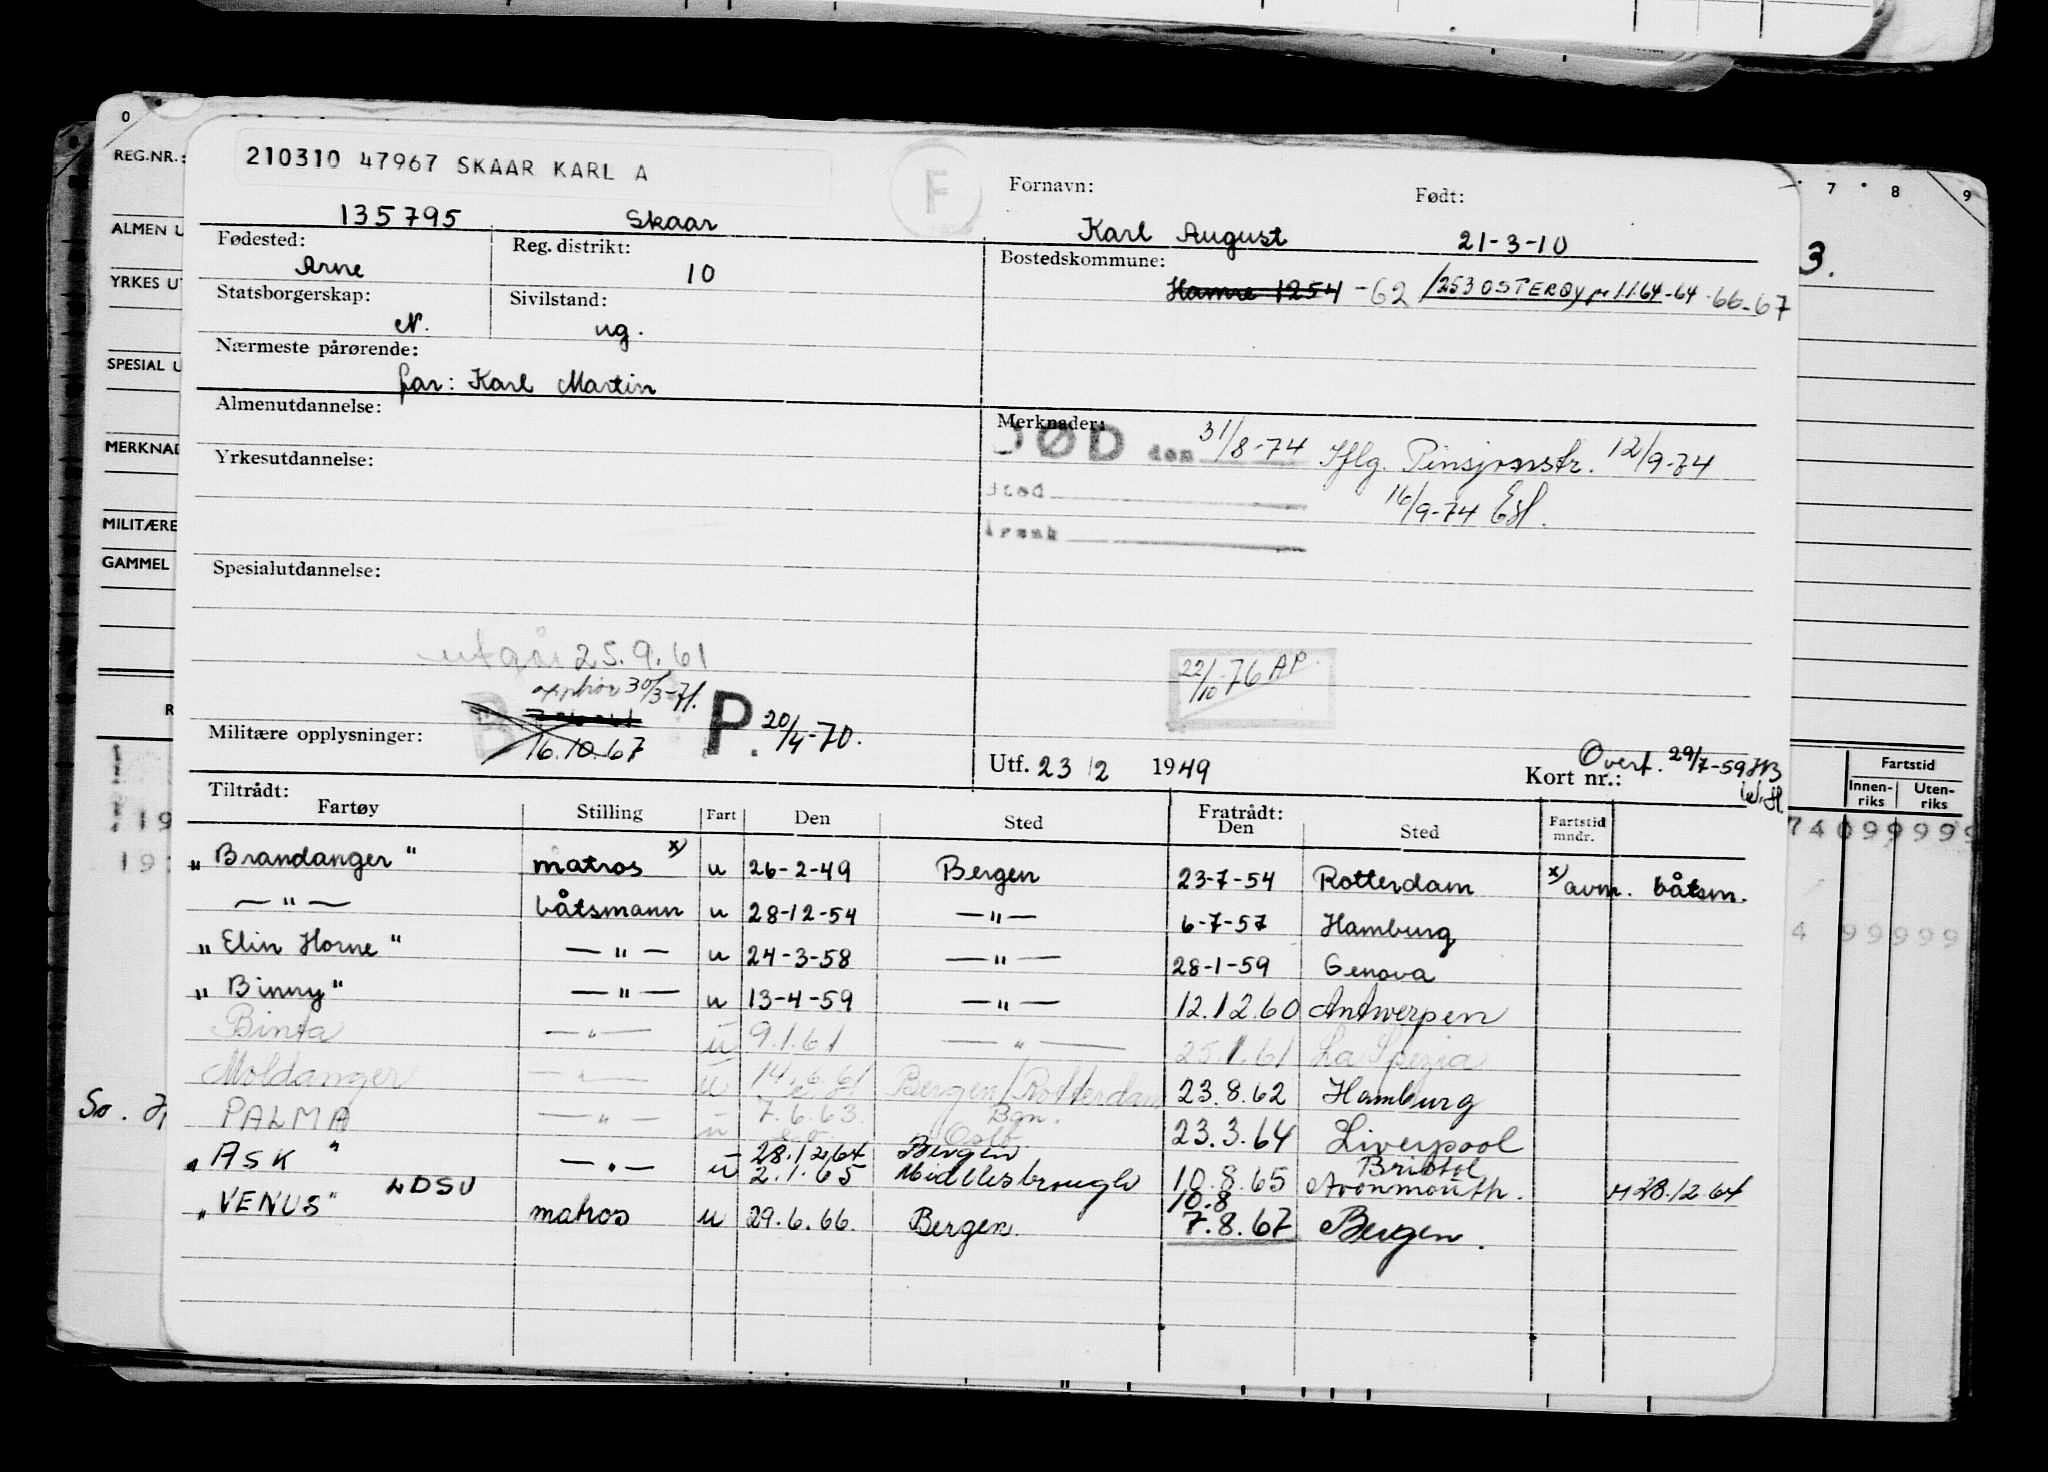 210310 47967 SKAAR KARL A
F
Fornavn:
Født:
135795 Skaar Karl August 21-3-10
Fødested: Arne
Reg. distrikt: 10
Bostedskommune: Hamre 1254 -62 1253 OSTERØY pr 1.1.64 -64 -66-67
Statsborgerskap: N.
Sivilstand: ug.
Nærmeste pårørende:
far: Karl Martin
Almenutdannelse:
Merknader:
DØD den 31/8-74 Iflg. Pensjonstr. 12/9-74
Sted
16/9-74
Årsak
Yrkesutdannelse:
Spesialutdannelse:
utgår 25.9.61
opphør 30/3-71.
22/10-76 AP.
Militære opplysninger: 16.10.67 P. 20/4-70.
Utf. 23/2 1949
Kort nr.:
Overf. 29/7-59
Tiltrådt:
Fratrådt:
Fartøy Stilling Fart Den Sted Den Sted Fartstid mndr.
"Brandanger" matros x) u 26-2-49 Bergen 23-7-54 Rotterdam x) avm. båtsm.
— " — båtsmann u 28-12-54 — " — 6-7-57 Hamburg
"Elin Horne" — " — u 24-3-58 — " — 28-1-59 Genova
"Binny" — " — u 13-4-59 — " — 12.12.60 Antwerpen
Binta — " — u 9.1.61 — " — 25.1.61 La Spezia
Moldanger — " — u 14.6.61 Bergen/Rotterdam 23.8.62 Hamburg
PALMA — " — u 7.6.63. Bgn. Oslo 23.3.64 Liverpool
"ASK" — " — u 28.12.64 Bergen Bristol
2.1.65 Middlesbrough 10.8.65 Avonmouth. H 28.12.64
"VENUS" LDSU matros u 29.6.66. Bergen. 10.8
7.8.67 Bergen.
0
REG.NR.:
ALMEN U
YRKES UT
SPESIAL U
MERKNAD
MILITÆRE
GAMMEL
R
19
19
7 8 9
3.
Fartstid
Innen-riks Uten-riks
74099999
4 99999